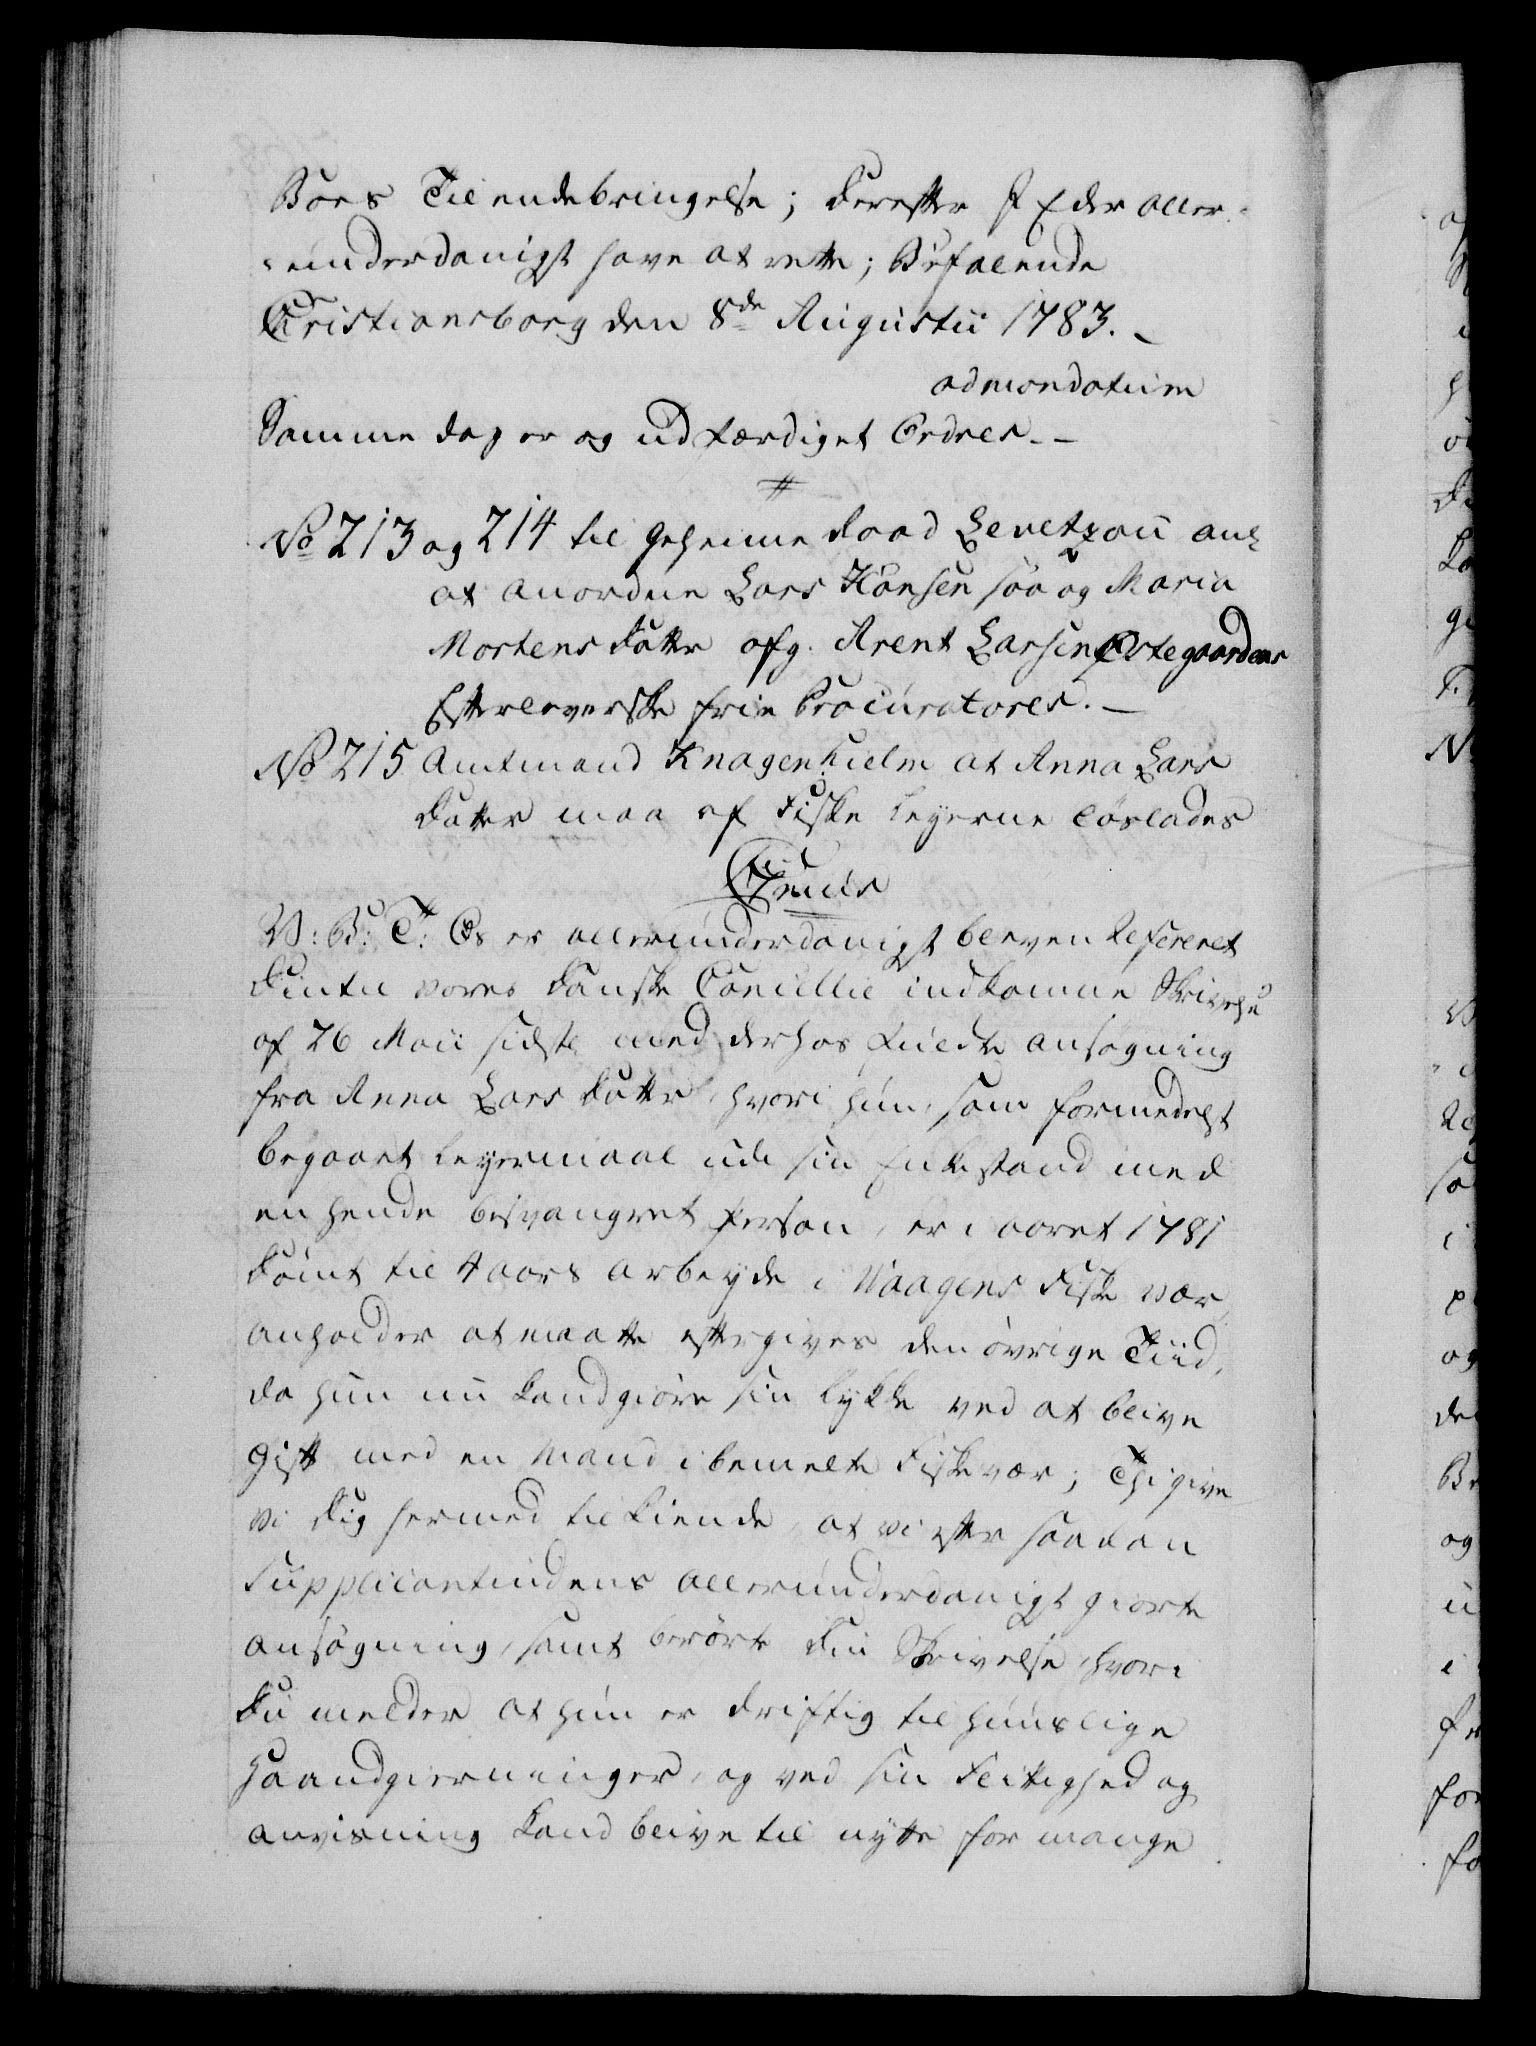 Boes Tilendebringelse; derefter I Eder aller-
-underdanigst have at rette; Befalende
Christiansborg den 8de Augustii 1783. -
admandatum
Samme dag er og udfærdiget Ordres. -
No 213 og 214 til Geheime Raad Levetzou anl
at anordne Lars Hansen saa og Maria
Mortensdatter afg. Arent Larsen Østegaardens
Efterleverske frie Procuratores. -
No 215 Amtmand Knagenhielm at Anna Lars
datter maa af Fiske Leyerne løslades
V: B: T: Os er allerunderdanigst bleven Refereret
Din til vores danske Cancellie indkomne Skrivelse
af 26 Maii sidste med derhos fuldte ansøgning
fra Anna Lars datter, hvori hun, som formedelst
begaaet Leyermaal udi sin Enkestand med
en hende besvangret Person, er i aaret 1781
dømt til 4 aars arbeyde i Waagens Fiske vær,
anholder at maatte eftergives den øvrige Tiid,
da hun nu kand giøre sin lykke ved at blive
gift med en Mand i bemelte Fiske vær; Thi give
vi dig hermed tilkiende, at vi efter saadan
Supplicantindens allerunderdanigst giorte
ansøgning, samt berørte din Skrivelse, hvori
du melder at hun er driftig til huuslige
Haandgierninger, og ved sin Flittighed og
anvisning kand blive til nytte for mange